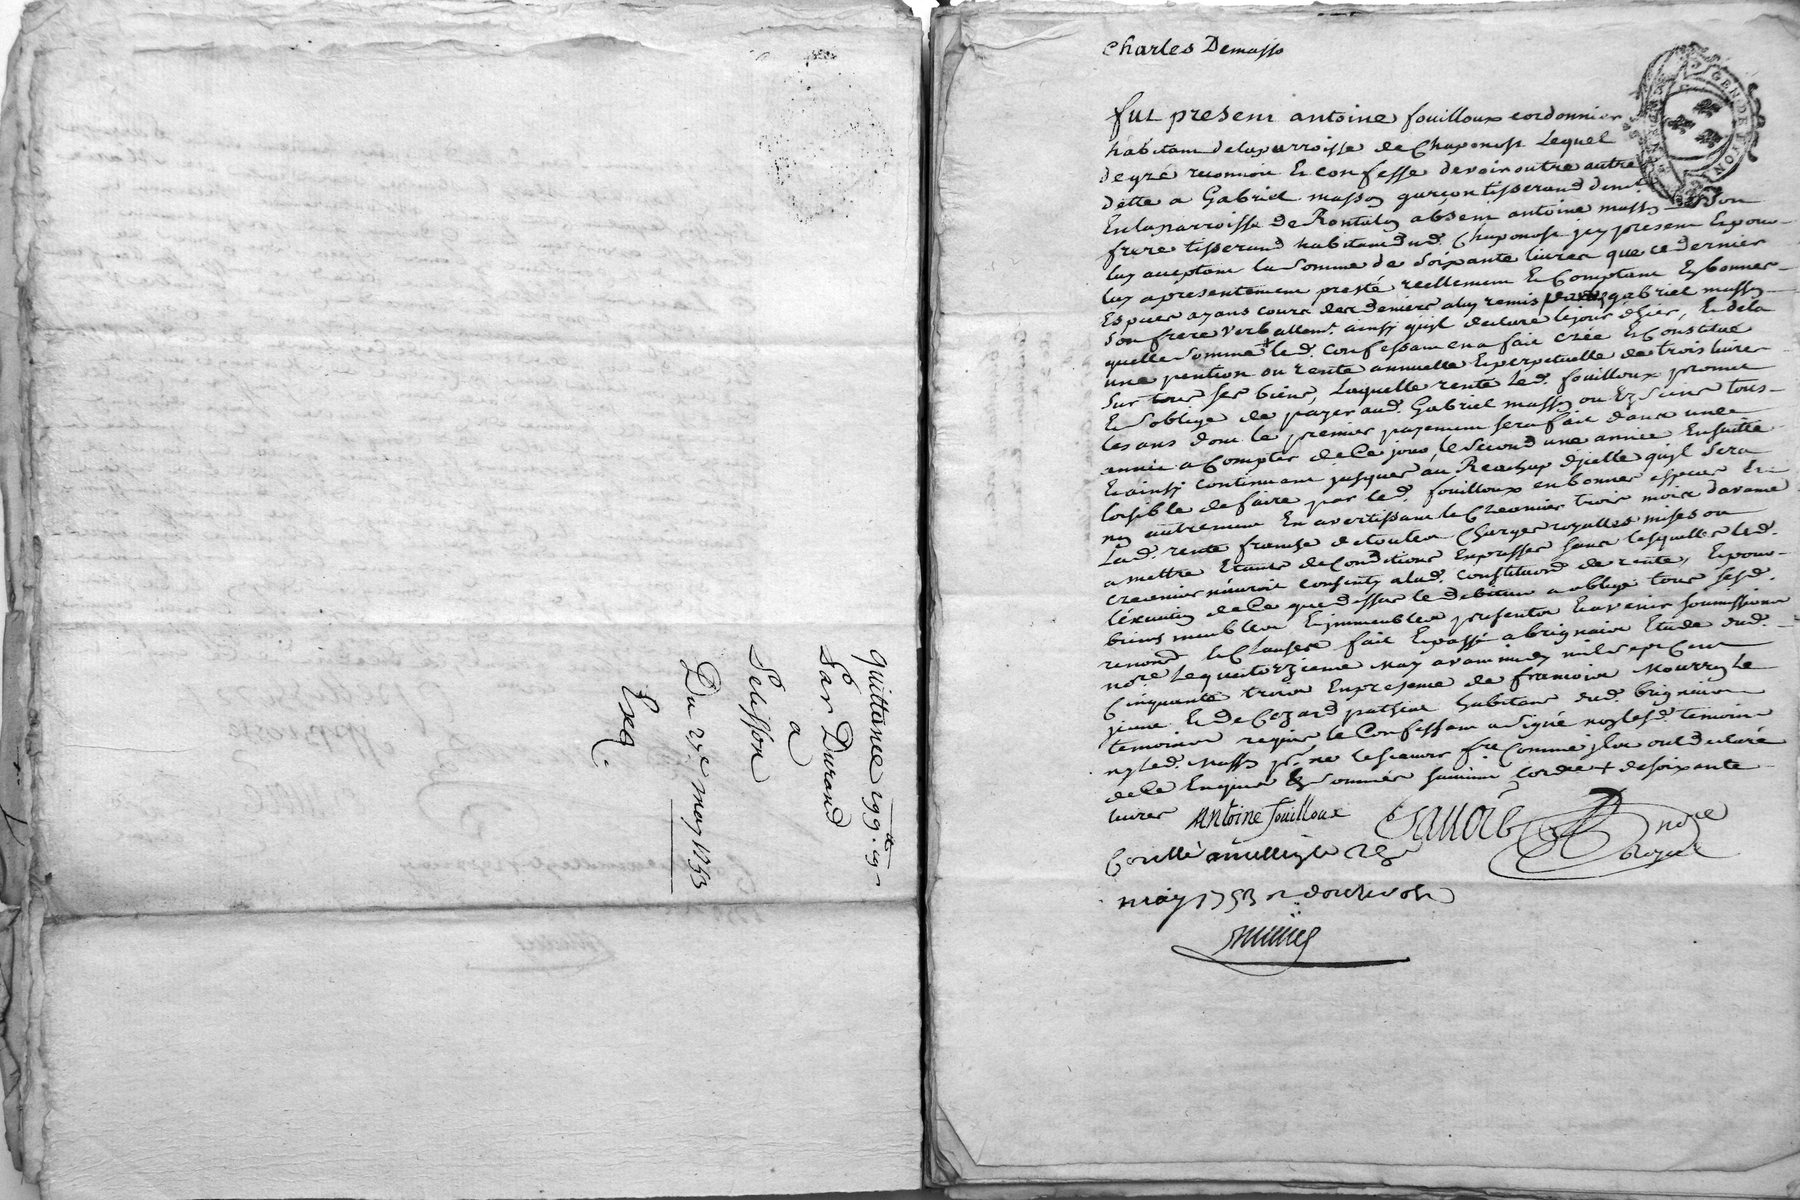 quittance 199.tt 19.s
Par Durand
a
Pelisson
Du 25.e may 1753
Exp.
Charles Demasso
GENER DE LYON
fut present antoine fouilloux cordonnier
habitant de la parroisse de Chaponost Lequel
de gré reconnoit Et confesse devoir outre autre
dette a Gabriel masson garçon tisserand dem.t
En la parroisse De Rontalon absent antoine masson son
frere tisserand habitant dud. Chaponost icy present Et pour
luy aceptant la somme de soixante livres que ce dernier
luy a presentement presté reellement Et Comptant En bonnes
Espèces ayans cours des deniers a luy remis par led. gabriel masson
son frere verballem.t ainsy qu'jl declare le jour d'hier, Et de la
quelle somme + led. Confessant en a fait crée Et Constitué
une pention ou rente annuelle Et perpetuelle de trois livres
sur tous ses biens, Laquelle rente Led. fouilloux promet
Et s'oblige de payer aud. Gabriel masson ou Es siens tous
les ans dont le premier payement sera fait dans une
année a Compter de Ce jour, le second une année Ensuitte
Et ainsy continuant jusques au Reachap d'jcelle qu'jl sera
loisible de faire par led. fouilloux en bonnes especes Et
non autrement En avertissant le Creancier trois mois d'avance
Lad. rente franche de toutes Charges royalles mises ou
a mettre Etants de Conditions Expresses sans lesquelles led.
creancier n'auroit consenty a lad. Constitution de rente, Et pour
l'éxecution de Ce que dessus le debiteur a obligé tous sesd.
biens meubles Et jmmeubles presents Et avenir soumissions
renon.s Et Clauses fait Et passé a brignais Etude dud.
no.re Le quatorzieme May avant midy mil sept Cent
Cinquante trois En presence de francois Mourron le
jeune Et de Cezard pathiat habitans dud. brignais
temoins requis le Confessant a signé non lesd. temoins
ny led. Masson p.r ne le sçavoir f.re Comme jls ont declaré
de Ce Enquis Et sommés suivant l'ord.e + de soixante
livres
Antoine fouilloux
no.re
royal
Conllé a
may 1753 R douze sols